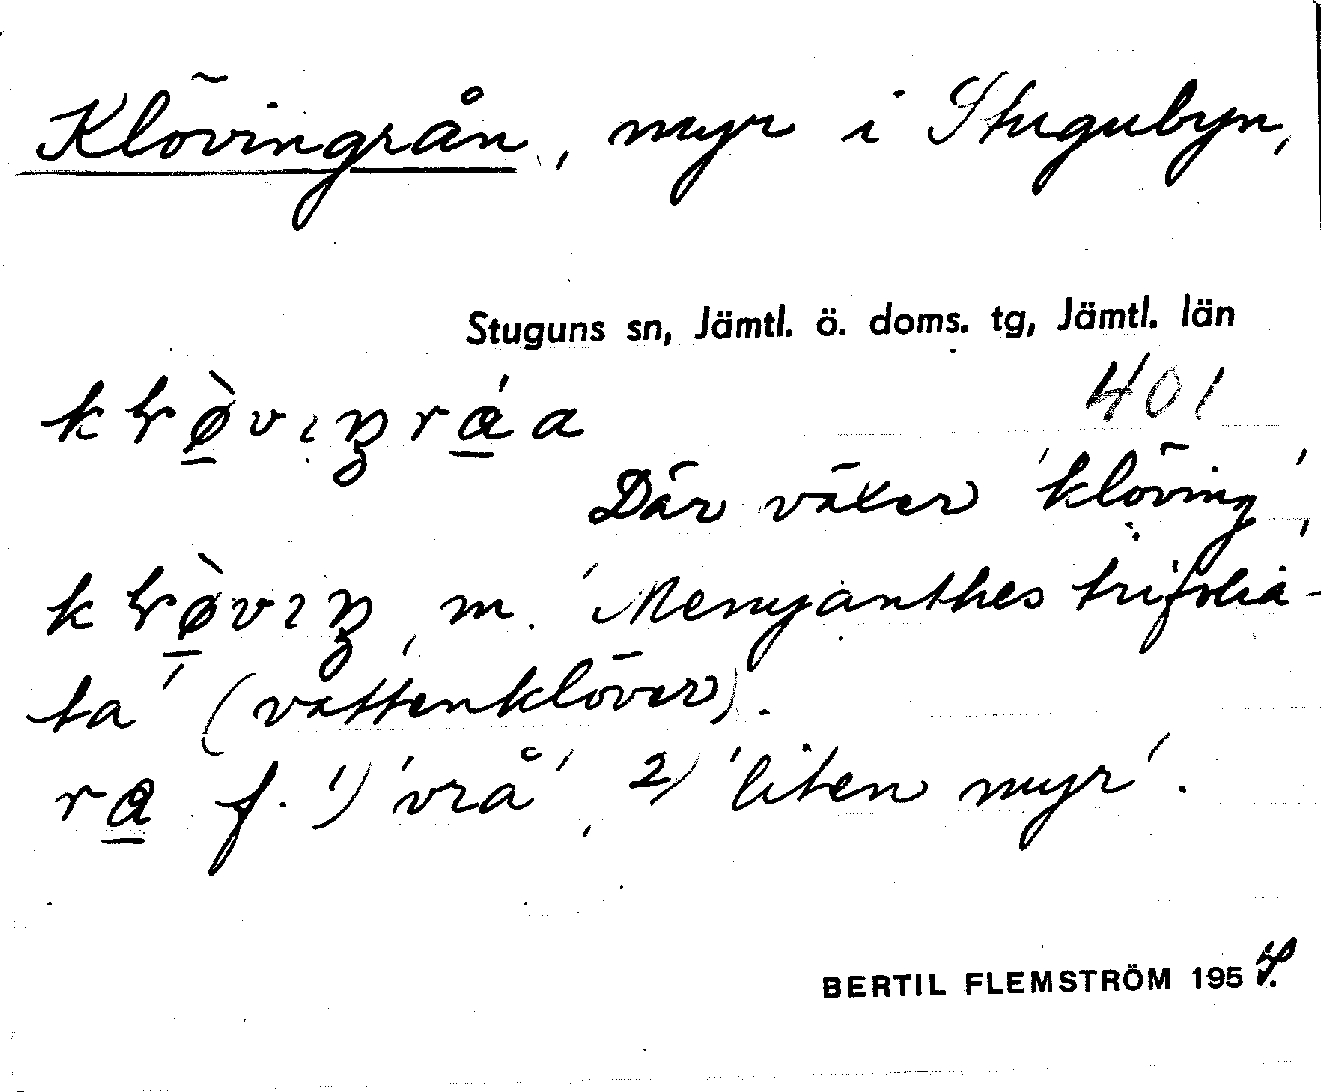 Klövingrån, myr i Stugubyn,
Stuguns sn, Jämtl. ö. doms. tg, Jämtl. län
401
Där växer 'klöving',
m. 'Menyanthes trifolia-
ta' (vattenklöver).
f. 1) 'vrå', 2) 'liten myr'.
BERTIL FLEMSTRÖM 1954.